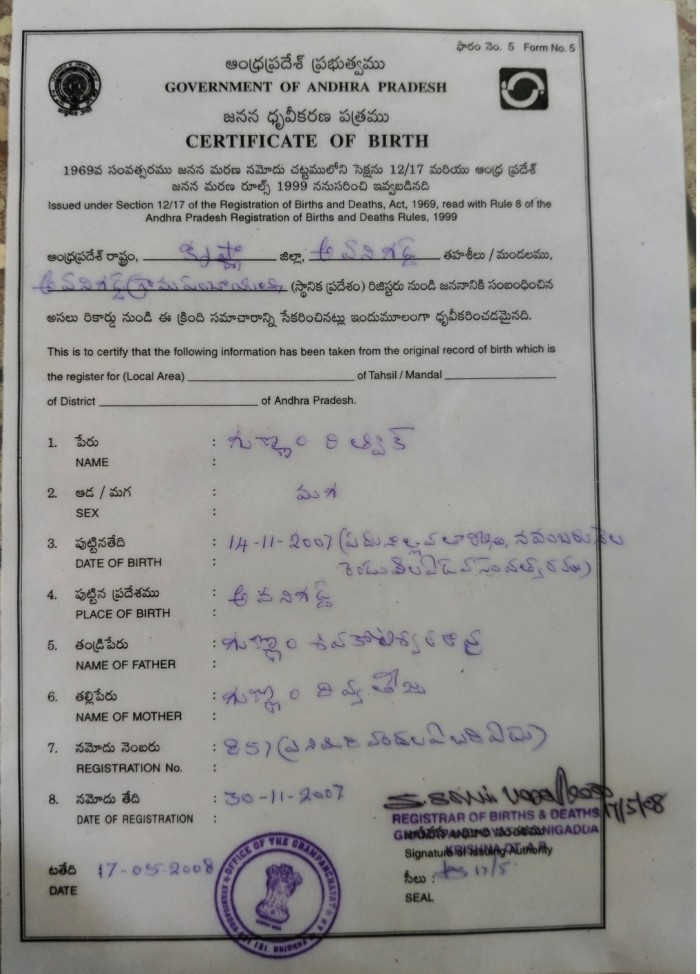 ఫారం నెం. 5 Form No. 5
ఆంధ్రప్రదేశ్ ప్రభుత్వము
GOVERNMENT OF ANDHRA PRADESH
జనన ధృవీకరణ పత్రము
CERTIFICATE OF BIRTH
1969వ సంవత్సరము జనన మరణ నమోదు చట్టములోని సెక్షను 12/17 మరియు ఆంధ్ర ప్రదేశ్
జనన మరణ రూల్స్ 1999 ననుసరించి ఇవ్వబడినది
Issued under Section 12/17 of the Registration of Births and Deaths, Act, 1969, read with Rule 8 of the
Andhra Pradesh Registration of Births and Deaths Rules, 1999
ఆంధ్రప్రదేశ్ రాష్ట్రం, కృష్ణా జిల్లా, అవనిగడ్డ తహశీలు / మండలము,
అవనిగడ్డ గ్రామపంచాయతి (స్థానిక ప్రదేశం) రిజిస్టరు నుండి జననానికి సంబంధించిన
అసలు రికార్డు నుండి ఈ క్రింది సమాచారాన్ని సేకరించినట్లు ఇందుమూలంగా ధృవీకరించడమైనది.
This is to certify that the following information has been taken from the original record of birth which is
the register for (Local Area) of Tahsil / Mandal
of District of Andhra Pradesh.
1. పేరు :
NAME :
2. ఆడ / మగ : మగ
SEX :
3. పుట్టినతేది : 14-11-2007 (పదునాల్గవ తారీఖు, నవంబరు నెల
DATE OF BIRTH : రెండువేల ఏడవ సంవత్సరము)
4. పుట్టిన ప్రదేశము : అవనిగడ్డ
PLACE OF BIRTH :
5. తండ్రిపేరు :
NAME OF FATHER :
6. తల్లిపేరు :
NAME OF MOTHER :
7. నమోదు నెంబరు : 857 (ఎనిమిది వందల ఏబది ఏడు)
REGISTRATION No. :
8. నమోదు తేది : 30-11-2007
DATE OF REGISTRATION :
17/5/08
REGISTRAR OF BIRTHS & DEATHS
Signature of Issuing Authority
టతేది 17-05-2008
DATE
సీలు : 17/5
SEAL
OFFICE OF THE GRAMPANCHAYAT